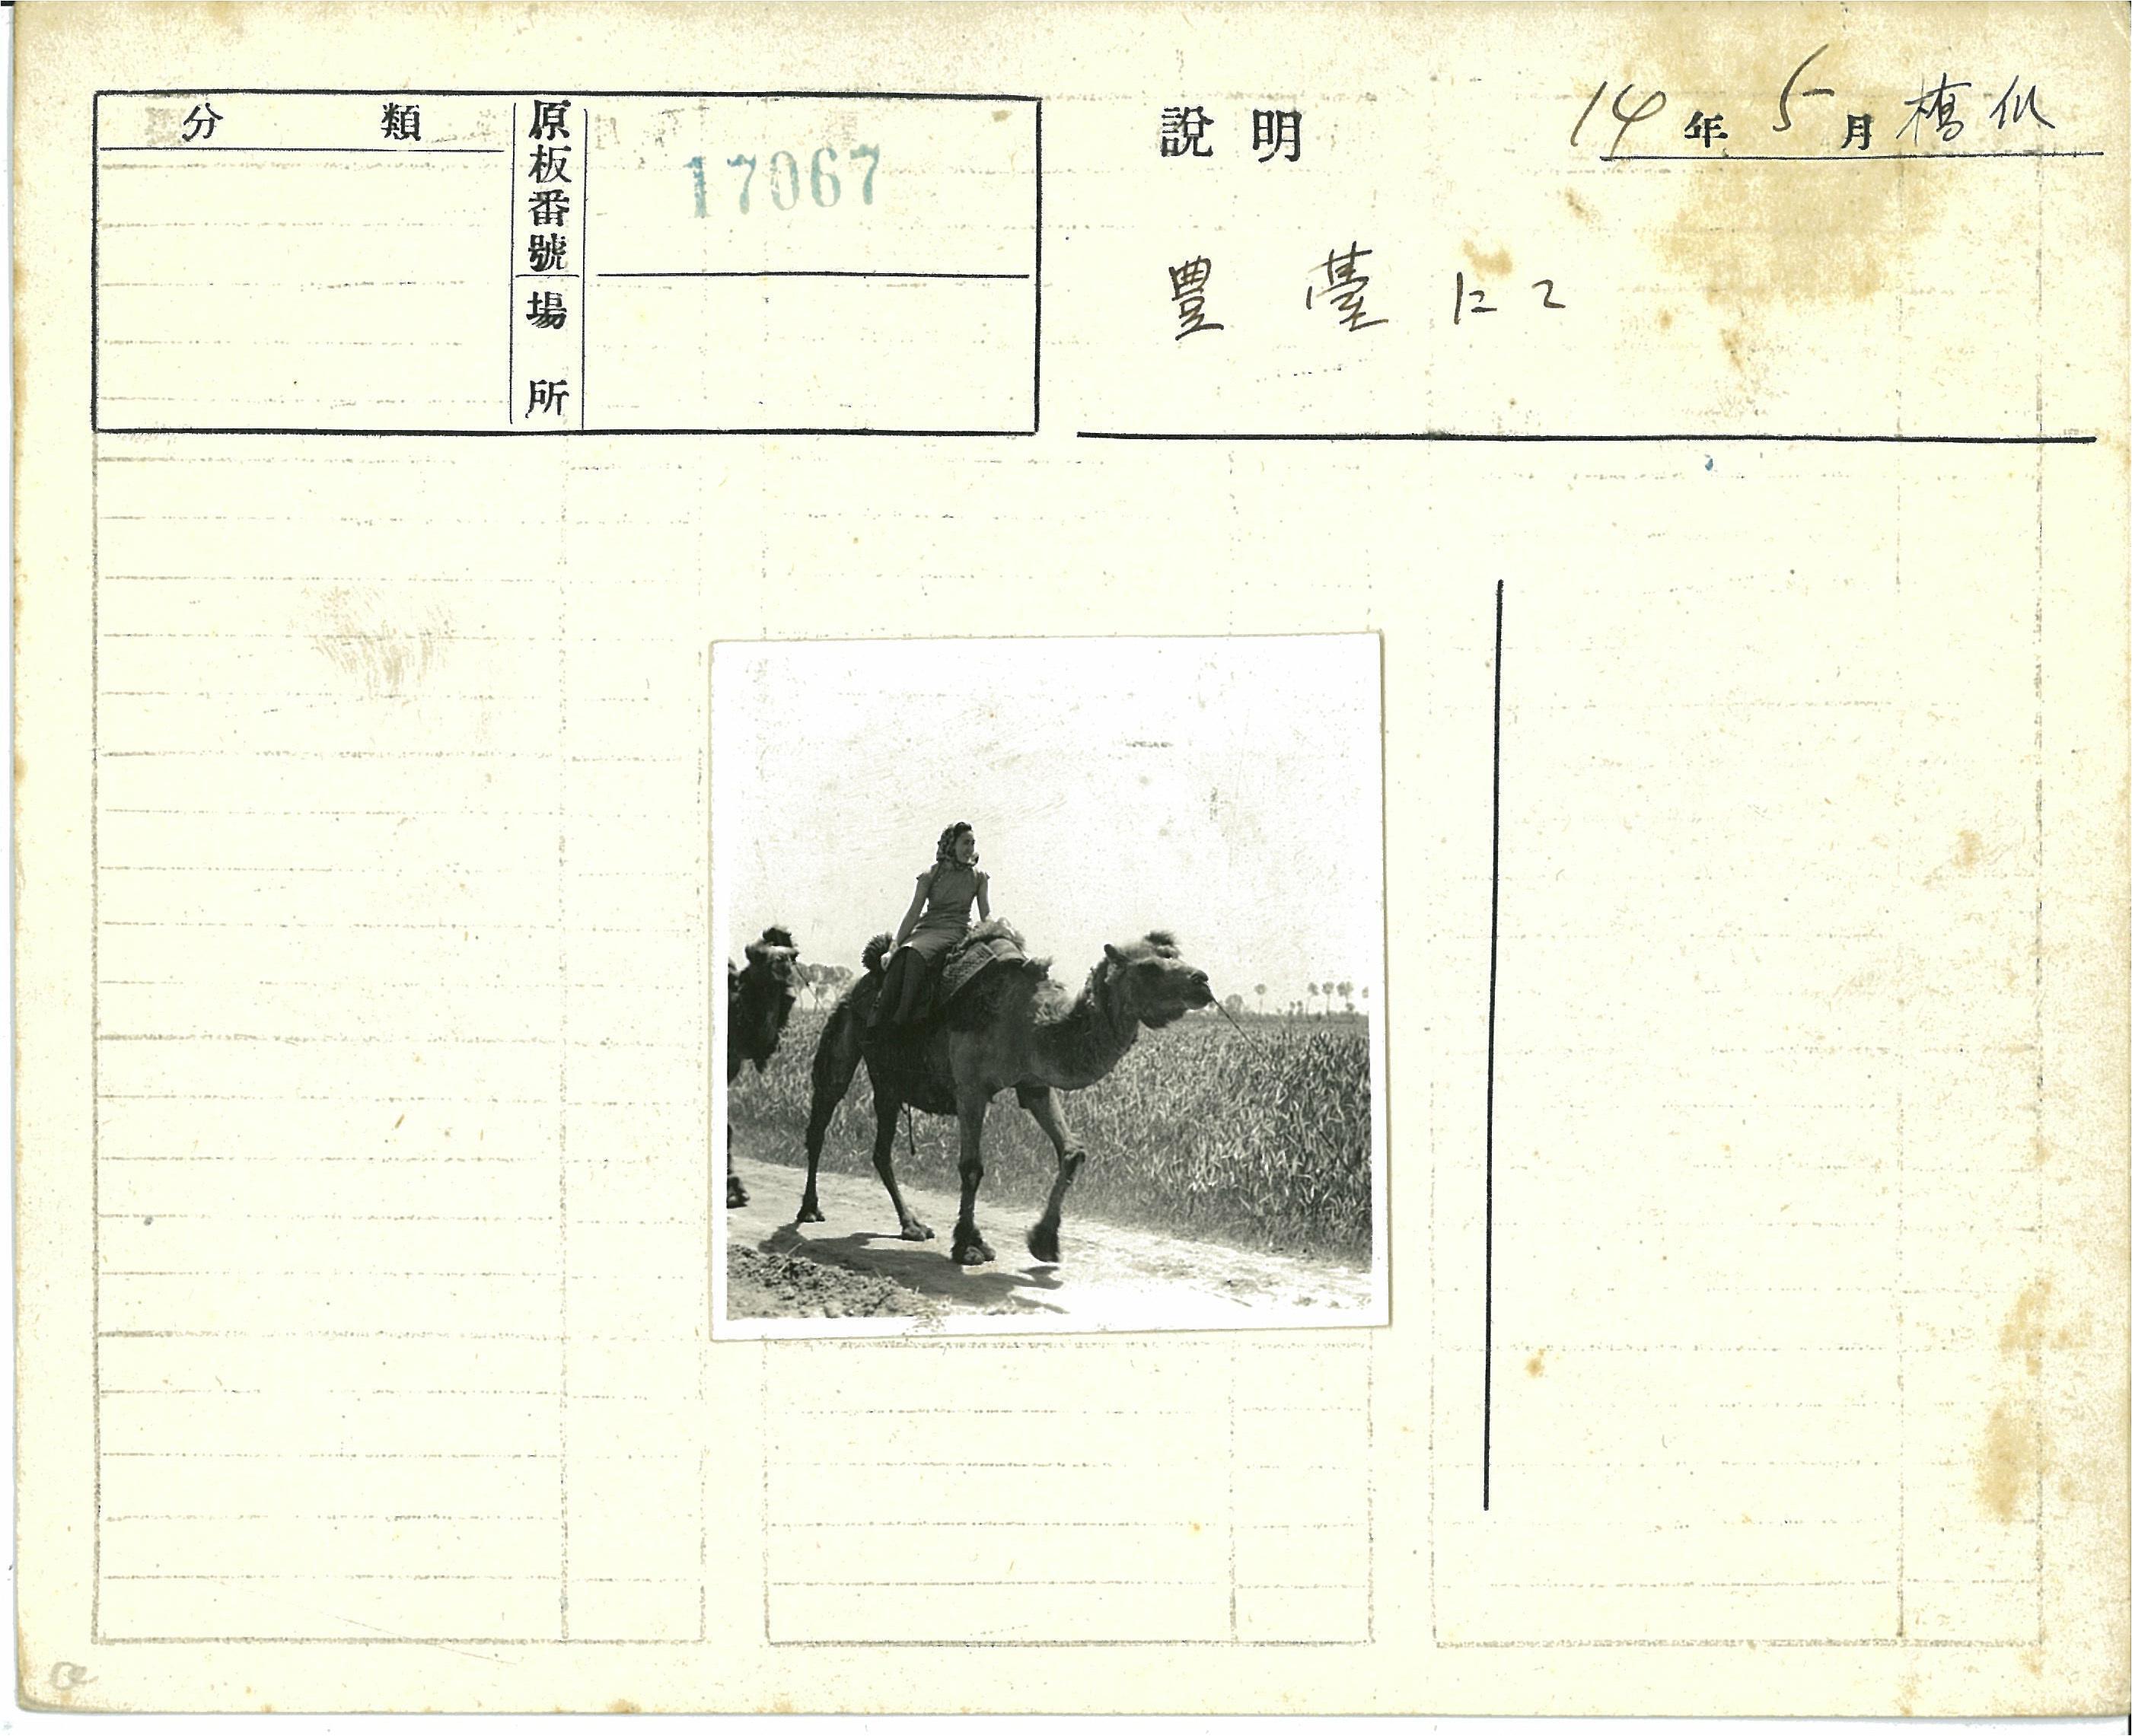 分類
原板番號
17067
場所
説明
14年5月
豊臺にて